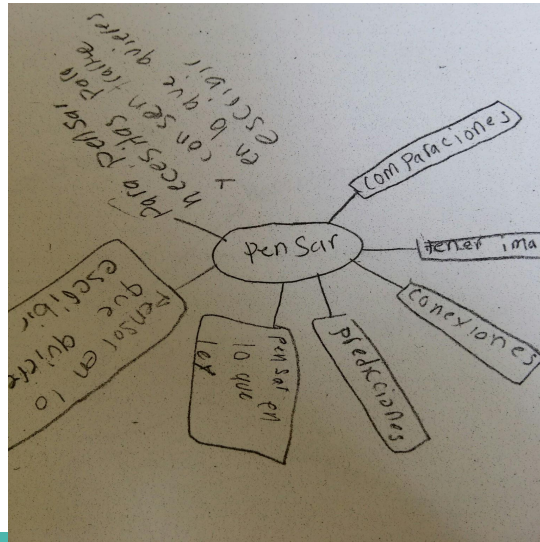 para pensar
necesitas para
y consentraite
en lo que quieres
escribir
comparaciones
pensar
tener ima
conexiones
predicciones
pensar en
lo que
lee
pensar en lo
que quiere
escribir